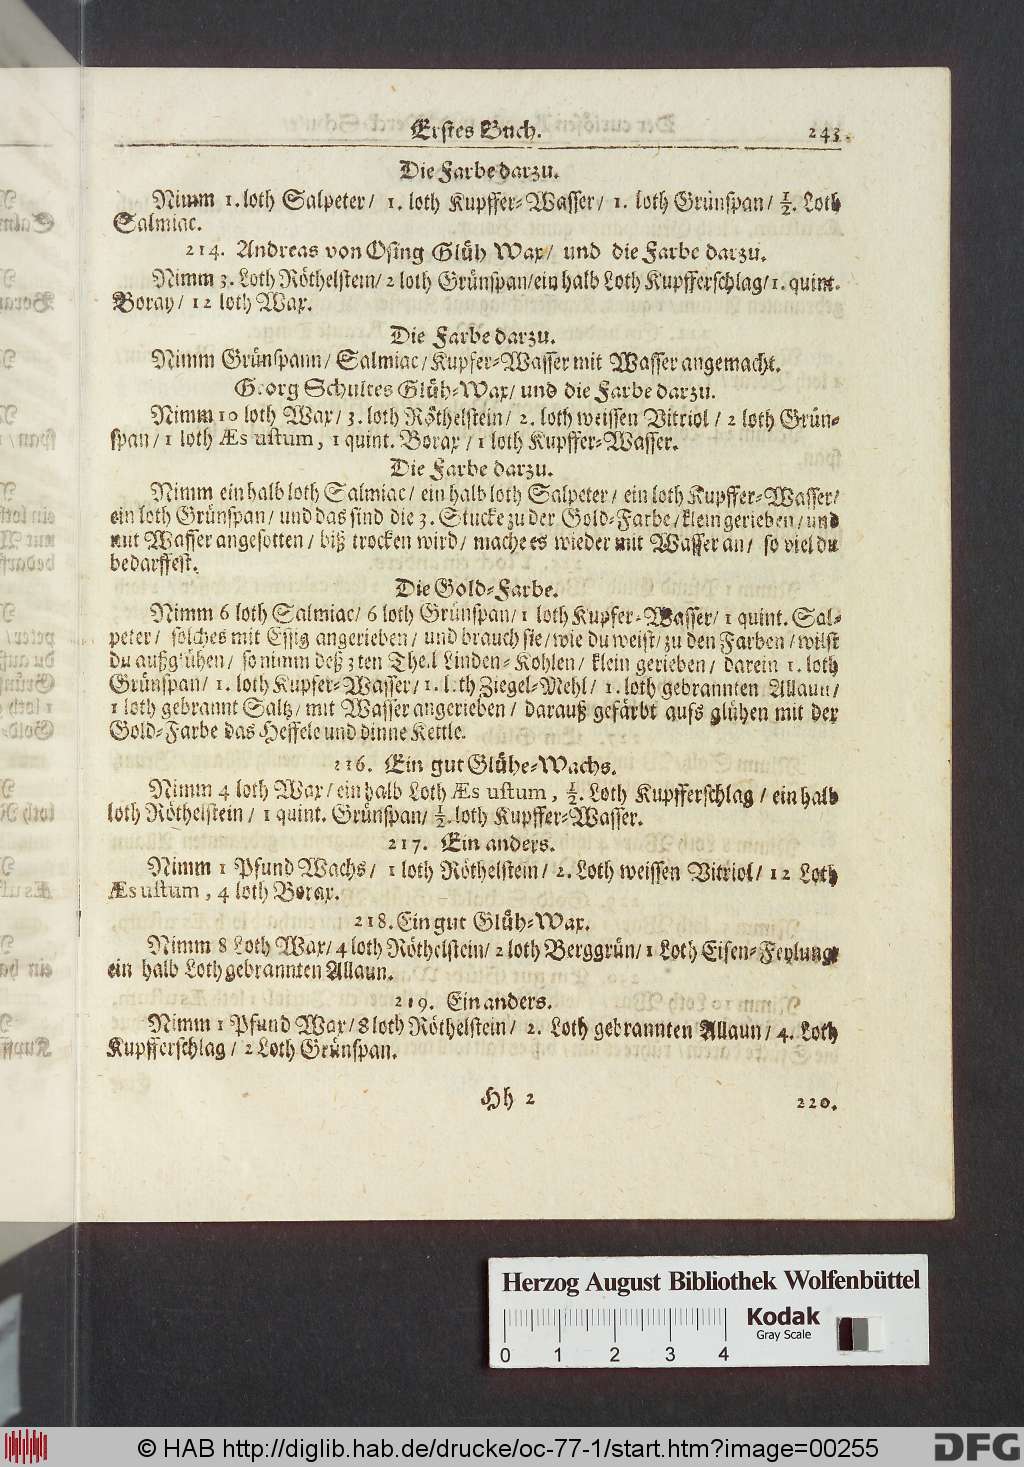 Erstes Buch. 243.
Die Farbe darzu.
Nimm 1. loth Salpeter/ 1. loth Kupffer-Wasser/ 1. loth Grünspan/ ½. Loth
Salmiac.
214. Andreas von Osing Glüh Wax/ und die Farbe darzu.
Nimm 3. Loth Röthelstein/ 2 loth Grünspan/ ein halb Loth Kupfferschlag/ 1. quint.
Borax/ 12 loth Wax.
Die Farbe darzu.
Nimm Grünspann/ Salmiac/ Kupfer-Wasser mit Wasser angemacht.
Georg Schultes Glüh-Wax/ und die Farbe darzu.
Nimm 10 loth Wax/ 3. loth Röthelstein/ 2. loth weissen Vitriol/ 2 loth Grün-
span/ 1 loth Æs ustum, 1 quint. Borax/ 1 loth Kupffer-Wasser.
Die Farbe darzu.
Nimm ein halb loth Salmiac/ ein halb loth Salpeter/ ein loth Kupffer-Wasser/
ein loth Grünspan/ und das sind die 3. Stucke zu der Gold-Farbe/ klein gerieben/ und
mit Wasser angesotten/ biß trocken wird/ mache es wieder mit Wasser an/ so viel du
bedarffest.
Die Gold-Farbe.
Nimm 6 loth Salmiac/ 6 loth Grünspan/ 1 loth Kupfer-Wasser/ 1 quint. Sal-
peter/ solches mit Essig angerieben/ und brauch sie/ wie du weist/ zu den Farben/ wilst
du außglühen/ so nimm deß 3ten Theil Linden-Kohlen/ klein gerieben/ darein 1. loth
Grünspan/ 1. loth Kupfer-Wasser/ 1. loth Ziegel-Mehl/ 1. loth gebrannten Allaun/
1 loth gebrannt Saltz/ mit Wasser angerieben/ darauß gefärbt aufs glühen mit der
Gold-Farbe das Heffele und dinne Kettle.
216. Ein gut Glühe-Wachs.
Nimm 4 loth Wax/ ein halb Loth Æs ustum, ½. Loth Kupfferschlag/ ein halb
loth Röthelstein/ 1 quint. Grünspan/ ½. loth Kupffer-Wasser.
217. Ein anders.
Nimm 1 Pfund Wachs/ 1 loth Röthelstein/ 2. Loth weissen Vitriol/ 12 Loth
Æs ustum, 4 loth Borax.
218. Ein gut Glüh-Wax.
Nimm 8 Loth Wax/ 4 loth Röthelstein/ 2 loth Berggrün/ 1 Loth Eisen-Feylung/
ein halb Loth gebrannten Allaun.
219. Ein anders.
Nimm 1 Pfund Wax/ 8 loth Röthelstein/ 2. Loth gebrannten Allaun/ 4. Loth
Kupfferschlag/ 2 Loth Grünspan.
Hh 2 220.
Herzog August Bibliothek Wolfenbüttel
Kodak
Gray Scale
0 1 2 3 4
© HAB http://diglib.hab.de/drucke/oc-77-1/start.htm?image=00255
DFG